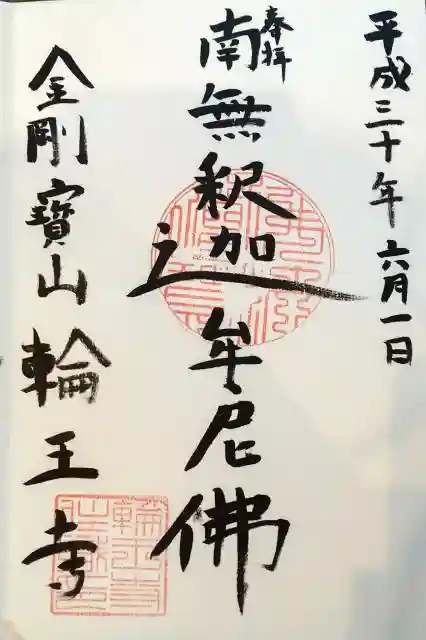 平成三十年六月一日
奉拝
南無釈迦牟尼佛
金剛寶山輪王寺